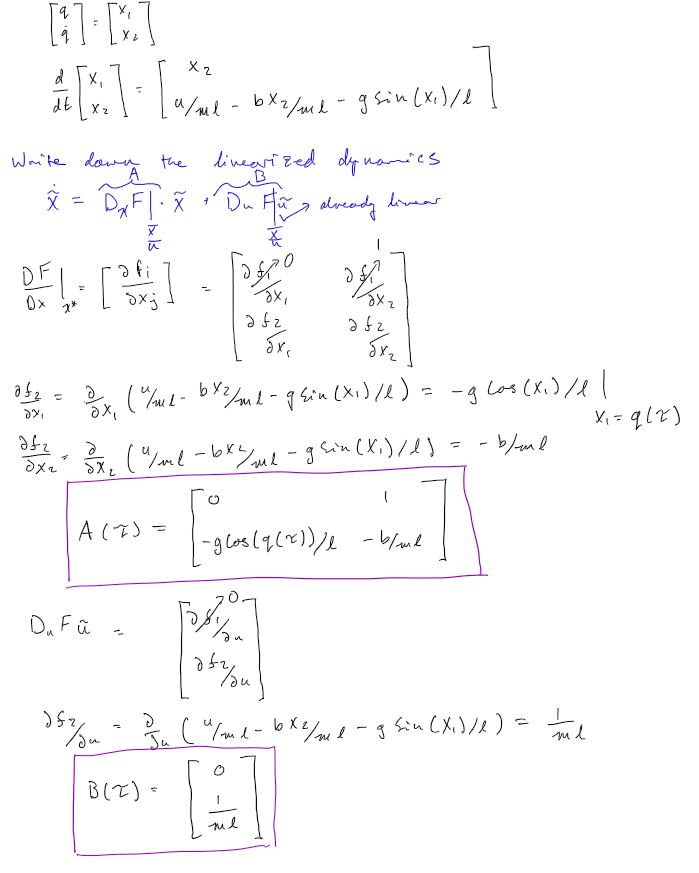 [q; q̇] = [x₁; x₂]
d/dt [x₁; x₂] = [x₂; u/ml - bx₂/ml - g sin(x₁)/l]
Write down the linearized dynamics
A B
x̃̇ = DₓF|_x̄,ū · x̃ + DᵤF|_x̄,ū ũ → already linear
DF/Dx|ₓ* = [∂fᵢ/∂xⱼ] = [∂f₁/∂x₁ → 0, ∂f₁/∂x₂ → 1; ∂f₂/∂x₁, ∂f₂/∂x₂]
∂f₂/∂x₁ = ∂/∂x₁ (u/ml - bx₂/ml - g sin(x₁)/l) = -g cos(x₁)/l |_x₁=q(τ)
∂f₂/∂x₂ = ∂/∂x₂ (u/ml - bx₂/ml - g sin(x₁)/l) = -b/ml
A(τ) = [0, 1; -g cos(q(τ))/l, -b/ml]
DᵤF ũ = [∂f₁/∂u → 0; ∂f₂/∂u]
∂f₂/∂u = ∂/∂u (u/ml - bx₂/ml - g sin(x₁)/l) = 1/ml
B(τ) = [0; 1/ml]